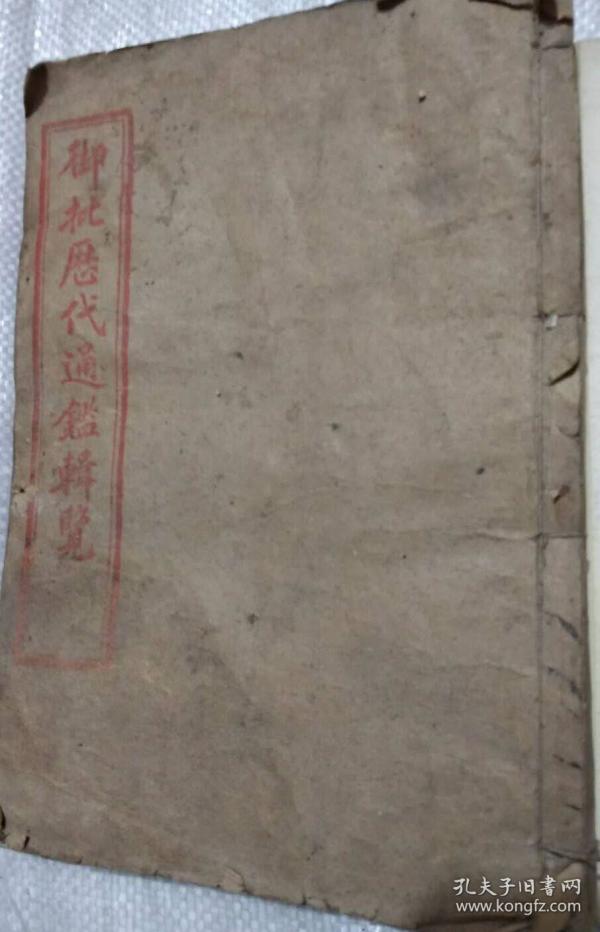 御批歷代通鑑輯覽
孔夫子旧书网
www.kongfz.com